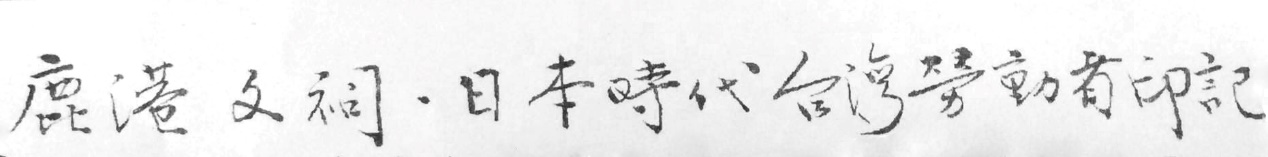 鹿港文祠·日本時代台灣勞動者印記